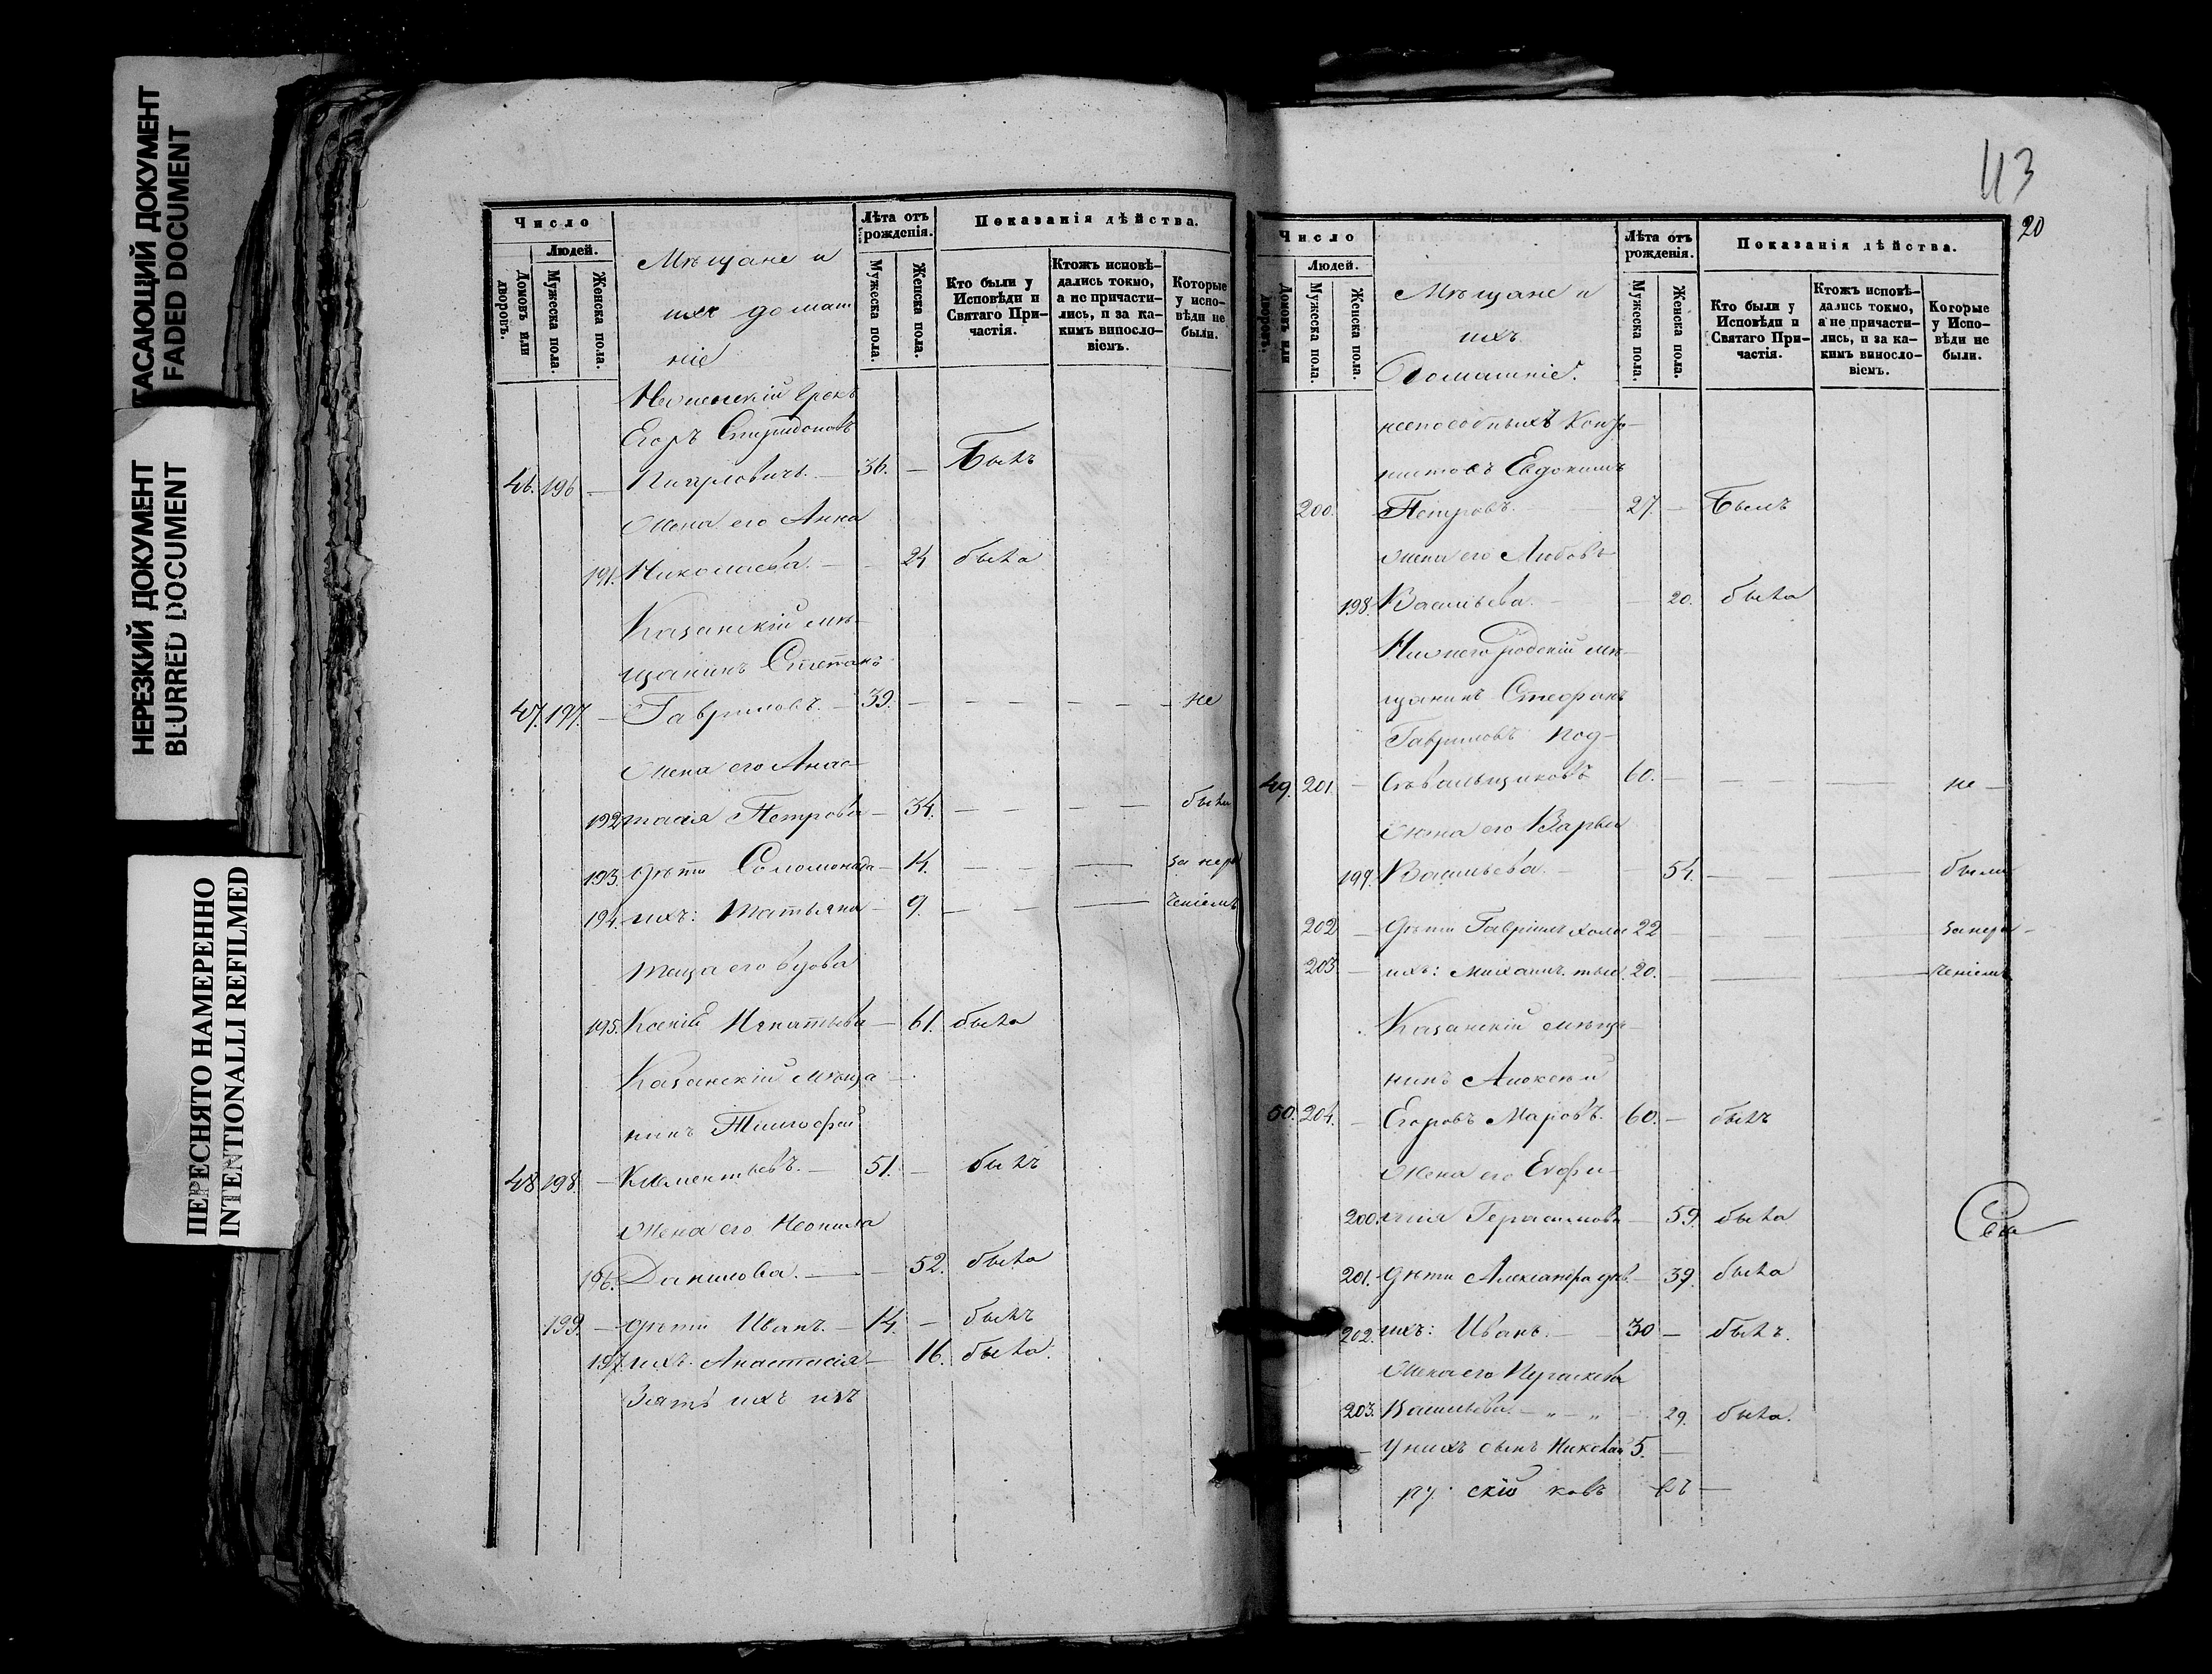 ГАСАЮЩИЙ ДОКУМЕНТ
FADED DOCUMENT
НЕРЕЗКИЙ ДОКУМЕНТ
BLURRED DOCUMENT
ПЕРЕСНЯТО НАМЕРЕННО
INTENTIONALLI REFILMED
Число
Людей.
Домовъ или дворовъ.
Мужеска пола.
Женска пола.
Мѣщане и
ихъ домаш
ніе
Лѣта отъ рожденія.
Мужеска пола.
Женска пола.
Показанія дѣйства.
Кто были у Исповѣди и Святаго Причастія.
Ктожъ исповѣдались токмо, а не причастились, и за какимъ винословіемъ.
Которые у исповѣди не были.
Грекъ
Егоръ Спиридоновъ
46. 196 — 36. — Былъ
Жена его Анна
191. Николаева. — 24 была
Казанскій мѣ-
щанинъ Степанъ
47. 197. — Гавриловъ. — 39. — — — — — не
Жена его Анас-
192 тасія Петрова — 34. — — — — были
193. дѣти Соломонида — 14. — — — за нера
194. ихъ: Татьяна — 9. — — — ченіемъ
теща его вдова
195. Ксенія Игнатьева — 61. была
Казанскій мѣща-
нинъ Тимофей
48. 198. — Климентьевъ. — 51. — былъ
Жена его Неонила
196. Данилова. — 52. была
199. — дѣти Иванъ. — 14. — былъ
197. ихъ. Анастасія — 16. была.
Зять ихъ изъ
43
20
Число
Людей.
Домовъ или дворовъ.
Мужеска пола.
Женска пола.
Мѣщане и
ихъ
Домашніе.
Лѣта отъ рожденія.
Мужеска пола.
Женска пола.
Показанія дѣйства.
Кто были у Исповѣди и Святаго Причастія.
Ктожъ исповѣдались токмо, а не причастились, и за какимъ винословіемъ.
Которые у Исповѣди не были.
неспособныхъ Кант-
нистовъ Евдокимъ
200. Петровъ. — 27. — Былъ
жена его Любовь
198. Васильева. — 20. была
Нижегородскій мѣ-
щанинъ Стефанъ
Гавриловъ Под-
49. 201. — 60. — — — — не —
Жена его Варва
199. Васильева. — 54. — — — были
202 — дѣти Гавріилъ холос 22 — — — за нера —
203 — ихъ: Михаилъ. тые. 20. — — ченіемъ
Казанскій мѣща-
нинъ Алексѣй
50. 204. — Егоровъ Маровъ. 60. — былъ
Жена его Евфи-
200. мія Герасимова — 59. была
201. дѣти Александра дѣв. — 39. была
202. ихъ: Иванъ. — 30 — былъ.
Жена его Параскева
203. Васильева. — „ — „ — 29. была.
— У нихъ сынъ Николай 5. —
скій ковъ